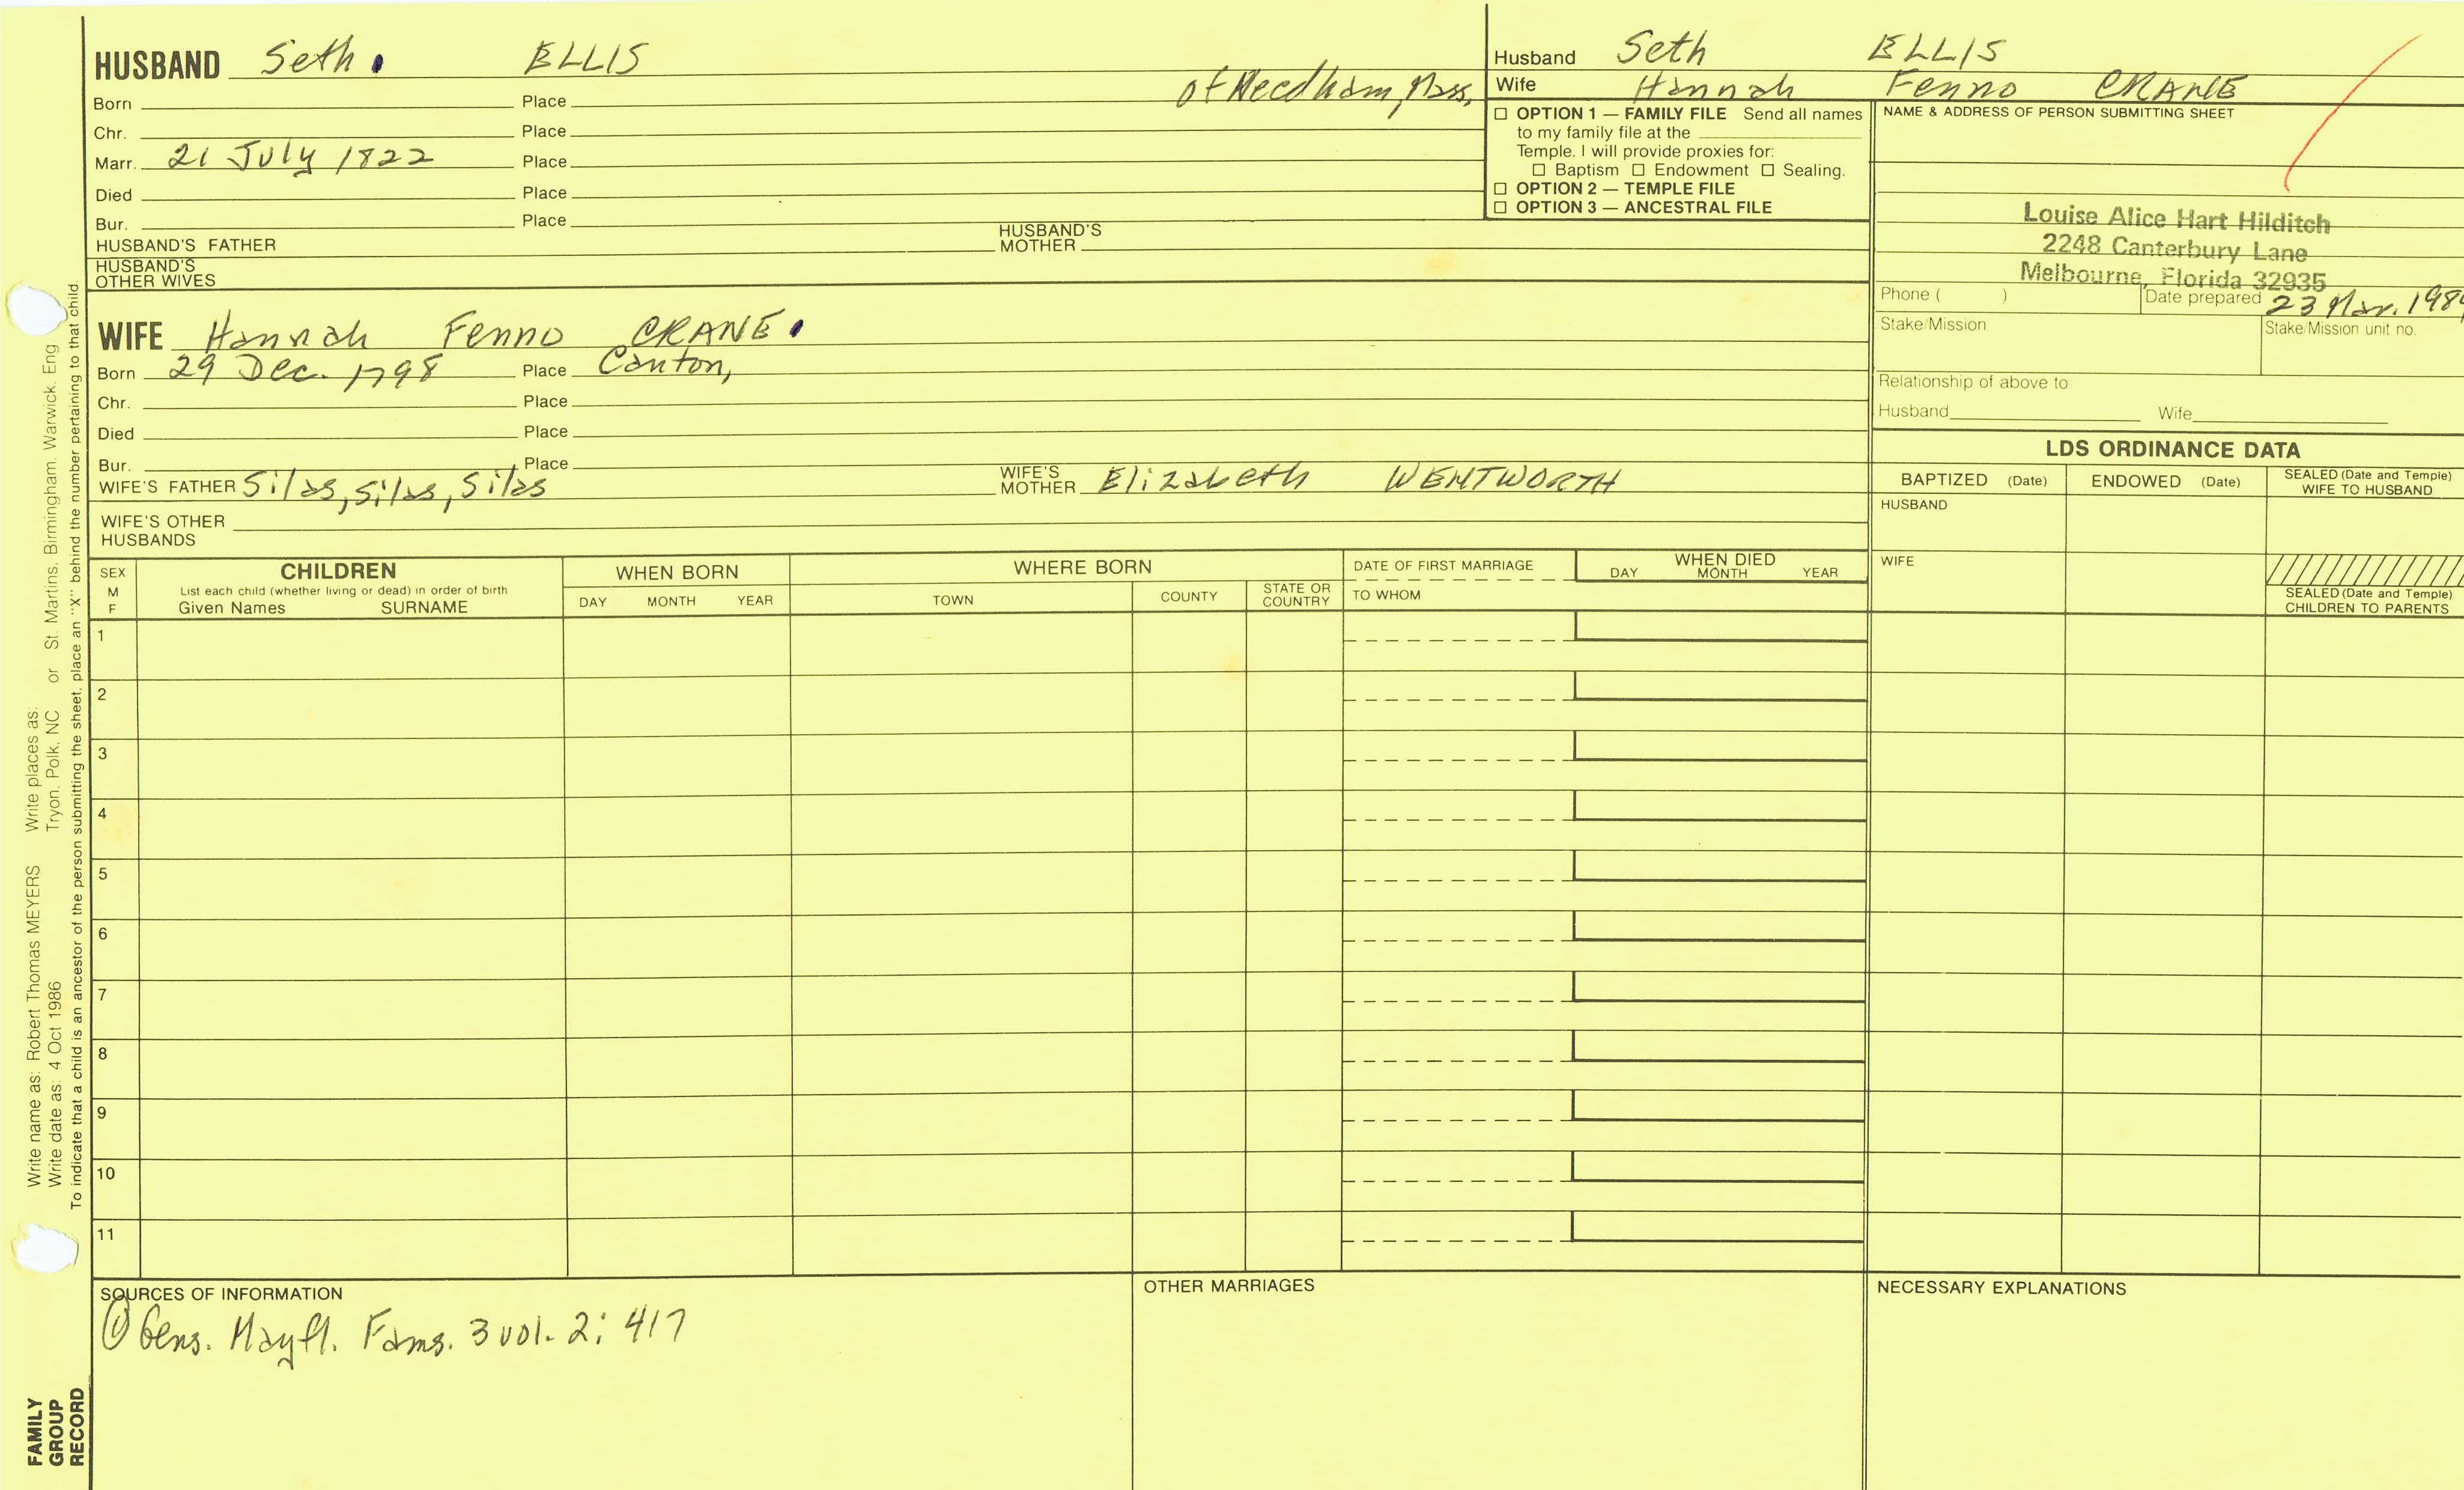 HUSBAND Seth ELLIS
of Needham, Mass,
Born Place
Chr. Place
Marr. 21 July 1822 Place
Died Place
Bur. Place
HUSBAND'S FATHER HUSBAND'S MOTHER
HUSBAND'S OTHER WIVES
WIFE Hannah Fenno CRANE
Born 29 Dec. 1798 Place Canton,
Chr. Place
Died Place
Bur. Place
WIFE'S FATHER Silas, Silas, Silas WIFE'S MOTHER Elizabeth WENTWORTH
WIFE'S OTHER HUSBANDS
Husband Seth ELLIS
Wife Hannah Fenno CRANE
☐ OPTION 1 — FAMILY FILE Send all names
to my family file at the
Temple. I will provide proxies for:
☐ Baptism ☐ Endowment ☐ Sealing.
☐ OPTION 2 — TEMPLE FILE
☐ OPTION 3 — ANCESTRAL FILE
NAME & ADDRESS OF PERSON SUBMITTING SHEET
Louise Alice Hart Hilditch
2248 Canterbury Lane
Melbourne, Florida 32935
Phone ( ) Date prepared 23 Mar.
Stake/Mission Stake/Mission unit no.
Relationship of above to
Husband Wife
LDS ORDINANCE DATA
BAPTIZED (Date) ENDOWED (Date) SEALED (Date and Temple) WIFE TO HUSBAND
HUSBAND
WIFE
SEALED (Date and Temple)
CHILDREN TO PARENTS
SEX
M
F
CHILDREN
List each child (whether living or dead) in order of birth
Given Names SURNAME
WHEN BORN
DAY MONTH YEAR
WHERE BORN
TOWN COUNTY STATE OR COUNTRY
DATE OF FIRST MARRIAGE
TO WHOM
WHEN DIED
DAY MONTH YEAR
1
2
3
4
5
6
7
8
9
10
11
SOURCES OF INFORMATION
① Gens. Mayfl. Fams. 3 vol. 2: 417
OTHER MARRIAGES
NECESSARY EXPLANATIONS
Write name as: Robert Thomas MEYERS Write places as:
Write date as: 4 Oct 1986 Tryon, Polk, NC or St. Martins, Birmingham, Warwick, Eng
To indicate that a child is an ancestor of the person submitting the sheet, place an "X" behind the number pertaining to that child.
FAMILY
GROUP
RECORD